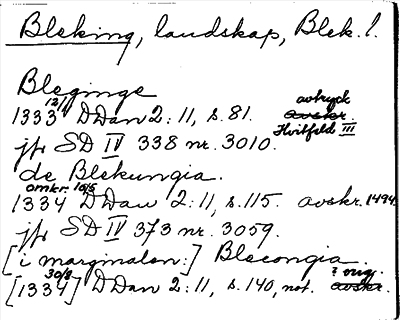 Bleking, landskap, Blek. l.
Bleginge
1333 12/11 DDan 2:11, s. 81. avskr. avtryck Hvitfeld III
jfr SD IV 338 nr. 3010.
de Blekungia.
1334 omkr. 10/5 DDan 2:11, s. 115. avskr. 1494.
jfr SD IV 373 nr. 3059.
[i marginalan:] Blecongia.
[1334] 30/8 DDan 2:11, s. 140, not. avskr. ? orig.